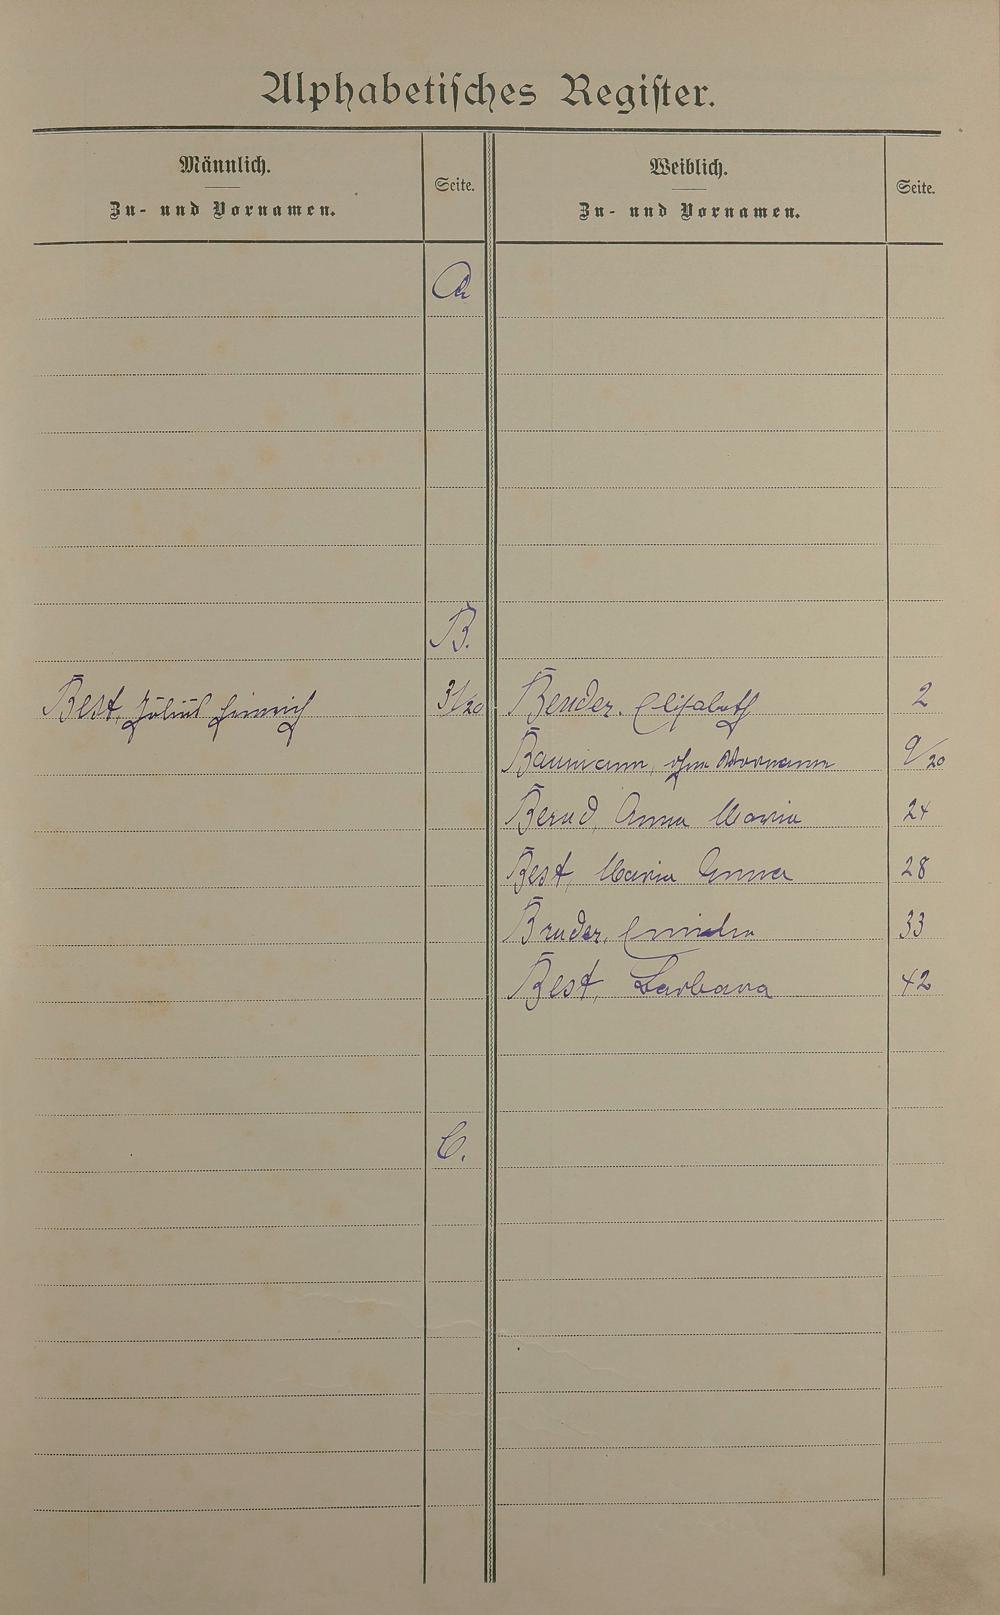 Alphabetisches Register.
Männlich.
Zu- und Vornamen.
Seite.
Weiblich.
Zu- und Vornamen.
Seite.
A
B.
Best, Julius Heinrich 31/20 Bender, Elisabeth 2
Baumann, ohne Vornamen 9/20
Bernd, Anna Maria 24
Best, Maria Anna 28
Bruder, 33
Best, Barbara 42
C.